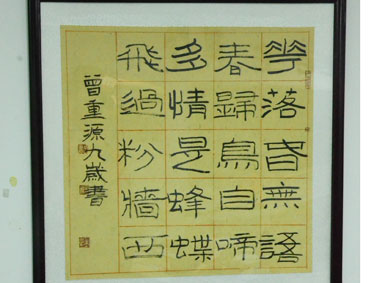 花落旾無語
春歸鳥自啼
多情是蜂蝶
飛過粉牆西
曾重源九歲書